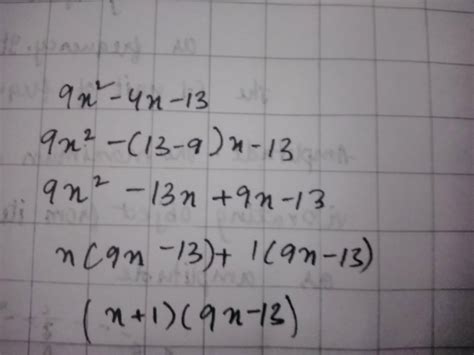 9x² - 4x - 13
9x² - (13-9)x - 13
9x² - 13x + 9x - 13
x(9x - 13) + 1(9x - 13)
(x+1)(9x-13)